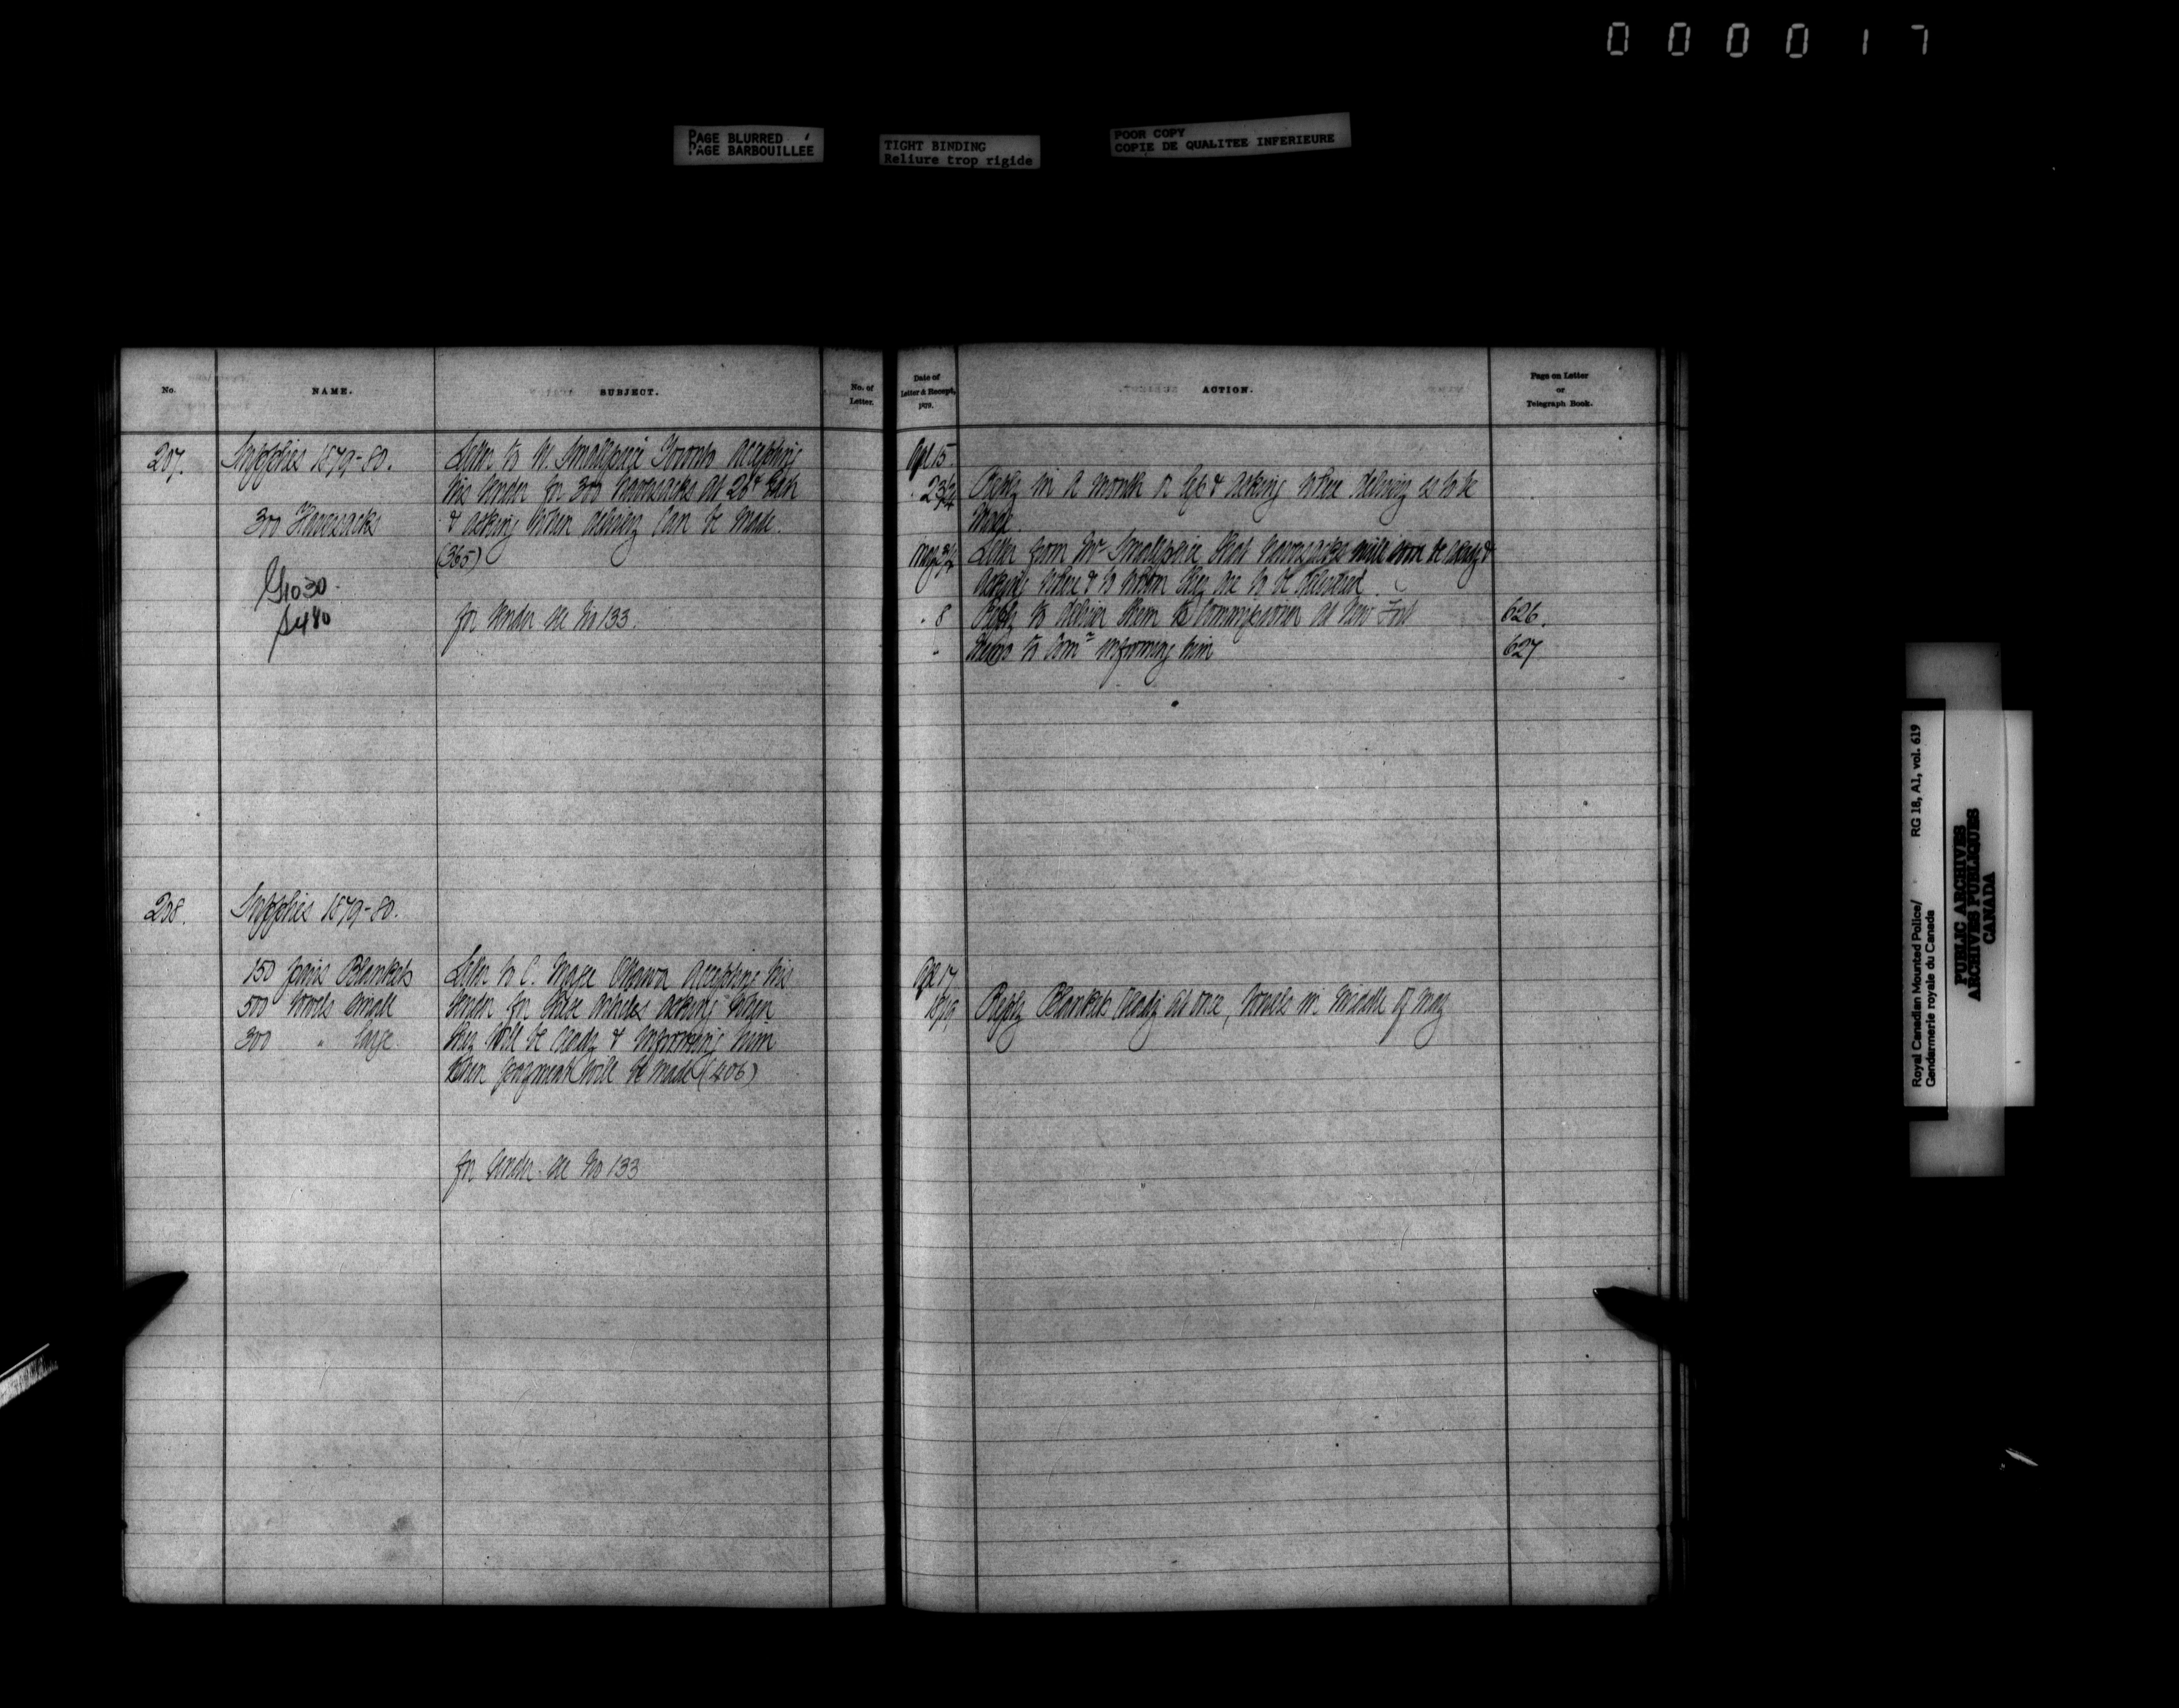 000017
PAGE BLURRED
PAGE BARBOUILLÉE
TIGHT BINDING
Reliure trop rigide
POOR COPY
COPIE DE QUALITEE INFERIEURE
No.
NAME.
SUBJECT.
No. of
Letter.
207.
Supplies 1879-80.
300 Haversacks
G1030
S480
Letter to W. Smallpeice Toronto accepting
his tender for 300 haversacks at 26¢ each
& asking when delivery can be made.
(365)
for tender see No 133.
208.
Supplies 1879-80.
150 pairs Blankets
500 towels small
300 " large
Letter to C. Magee Ottawa accepting his
tender for these articles asking when
they will be ready & informing him
when payment will be made (406)
for tender see No 133
Date of
Letter & Receipt,
ACTION.
Page on Letter
or
Telegraph Book.
Apl 15.
Reply in a month or less & asking where delivery is to be
made.
Letter from Mr Smallpeice that haversacks will soon be ready &
asking where & to whom they are to be delivered.
" 8 Reply to deliver them to Commissioner at New Fort 626.
" Memo to Comr informing him 627
Apl 17
18/19 Reply Blankets ready at once, towels in middle of May
Royal Canadian Mounted Police/ RG 18, A1, vol. 619
Gendarmerie royale du Canada
PUBLIC ARCHIVES
ARCHIVES PUBLIQUES
CANADA